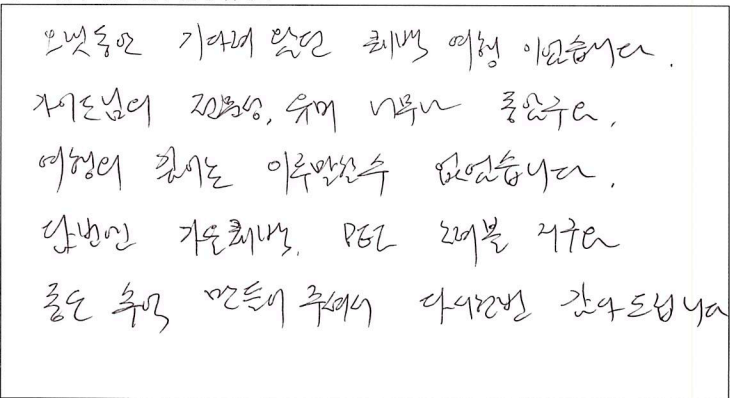 오랫동안 기다려 왔던 퀘백 여행 이었습니다.
가이드님의 전문성, 유머 너무나 좋았구요,
여행의 깊이는 이루말할수 없었습니다.
담번엔 가을퀘백, PEI 고려해볼
좋은 추억 만들어 주셔서 다시한번 감사드립니다